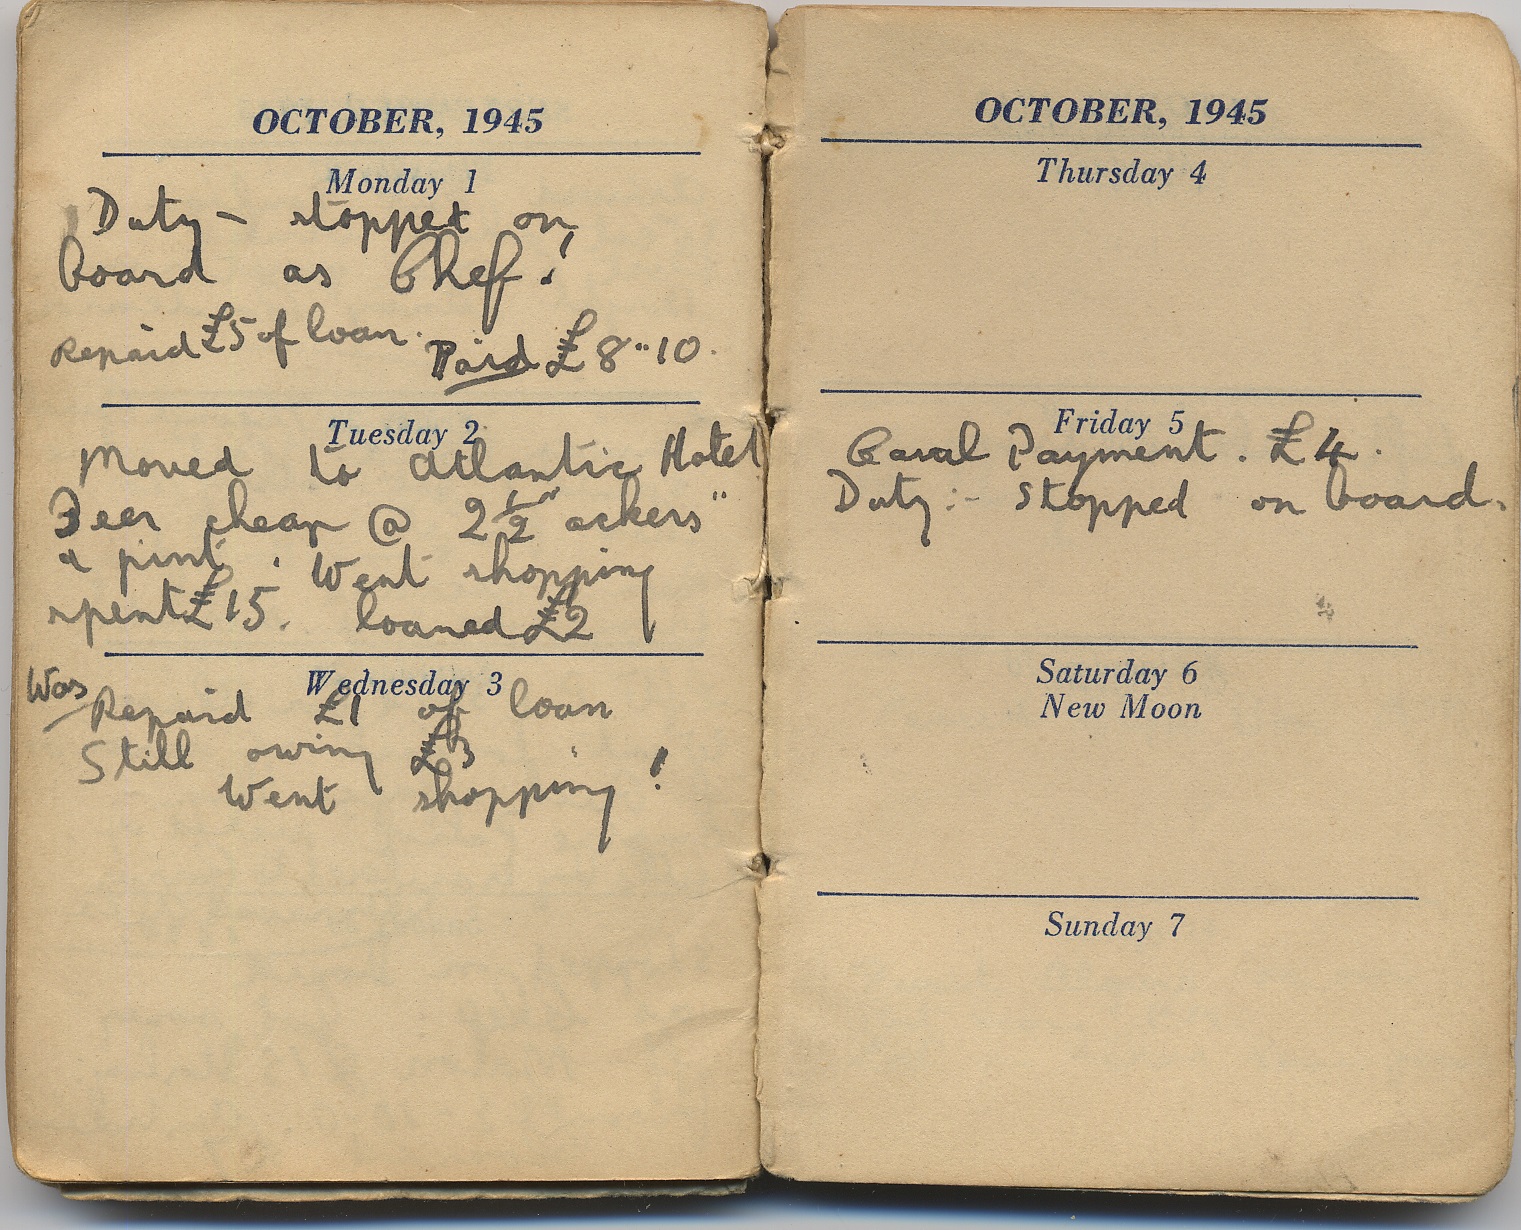 OCTOBER, 1945
Monday 1
Duty - stopped on
board as Chef!
Repaid £5 of loan. Paid £8"10.
Tuesday 2
Moved to Atlantic Hotel
Beer cheap @ 2½ "ackers"
a pint. Went shopping
spent £15. loaned £2
Wednesday 3
Was Repaid £1 of loan
Still owing £3
Went shopping!
OCTOBER, 1945
Thursday 4
Friday 5
Payment. £4.
Duty:- Stopped on board.
Saturday 6
New Moon
Sunday 7